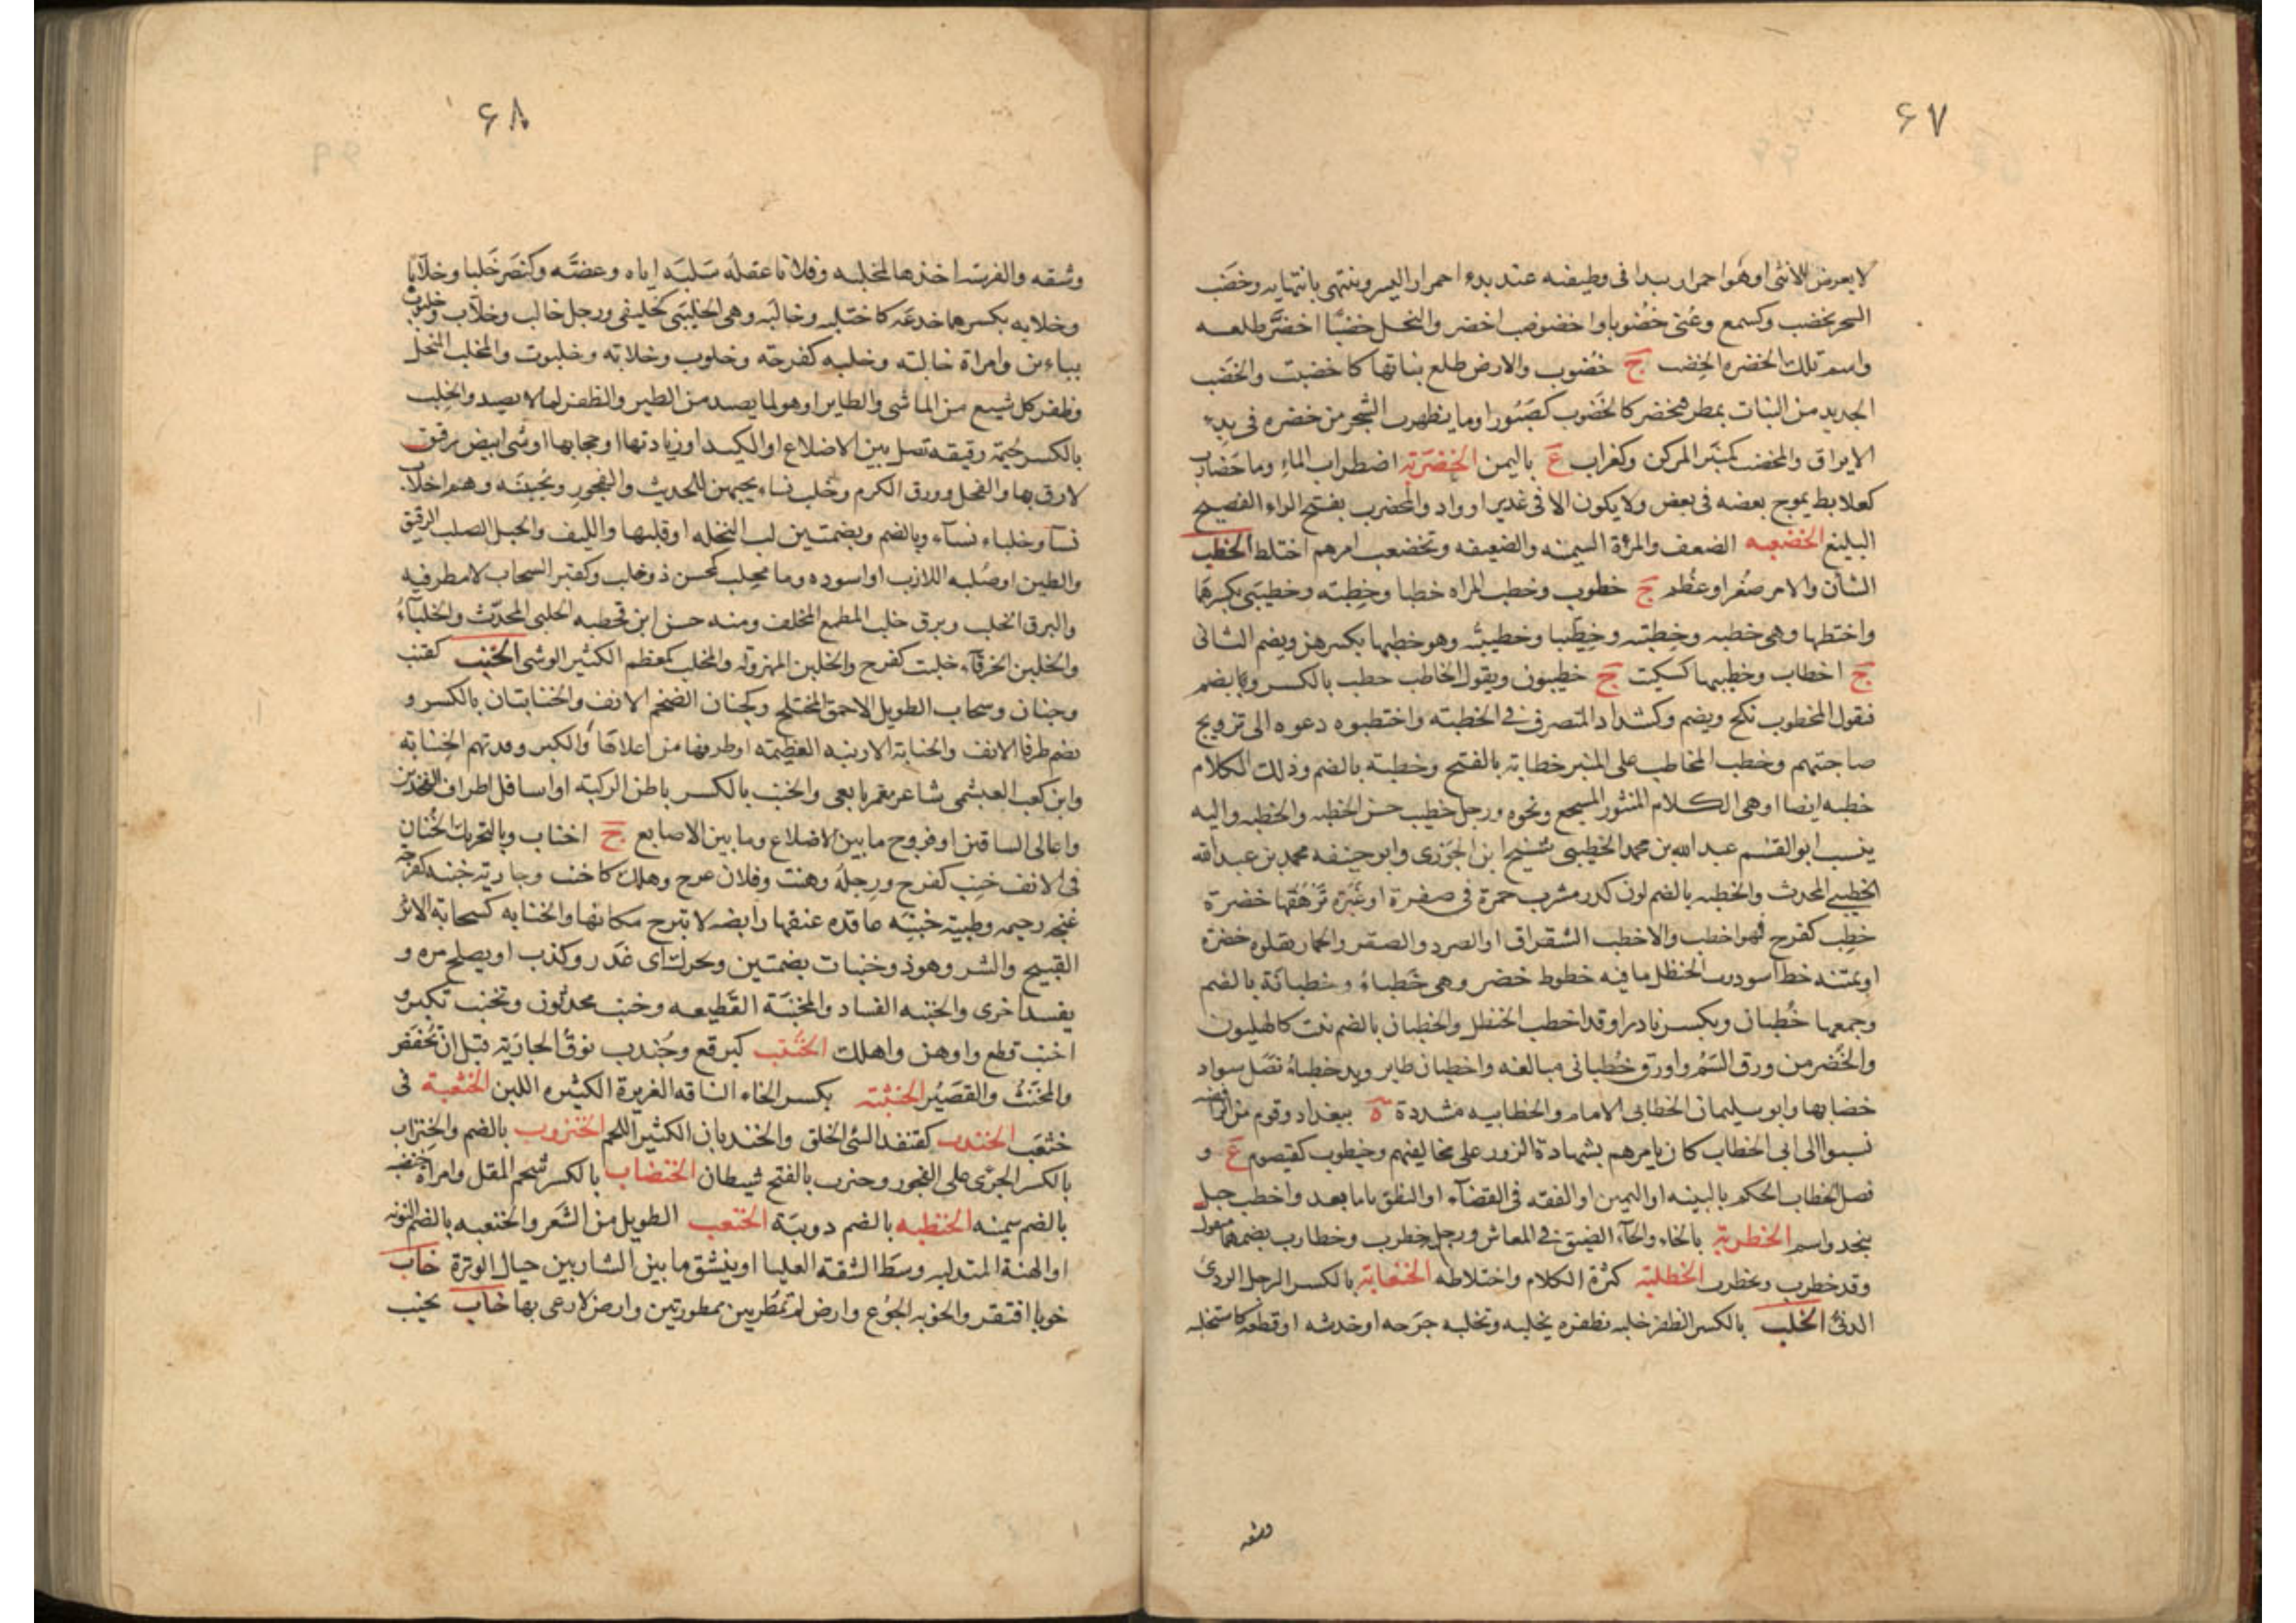 ۶۷
لا يعرض للأنثى او هو احمرار يبدا فى وظيفه عند بدء احمرار البسر وينتهى بانتهايه وخضب
الشجر يخضب وكسمع وعُنى خُضُوبا واخضوضب اخضر والنخل خضبًا اخضرَّ طلعه
واسم تلك الخضره الخضب ج خُضوب والارض طلع نباتها كاخضبت والخَضب
الجديد من النبات بمطر فيخضر كالخَضوب كصَبُور او ما يظهر من الشجر من خضره فى بدء
الايراق والمخضب كمنبَر المركن وكغراب ع باليمن الخضربة اضطراب الماءِ وما خضارب
كعلابط يموج بعضه فى بعض ولا يكون الا فى غدير او واد والمخضرب بفتح الراء الفصيح
البليغ الخضعبه الضعف والمرأة السمينه والضعيفه وتخضعب امرهم اختلط الخطب
الشأن والامر صغُر او عظُم ج خطوب وخطب المراه خطبا وخِطبته وخطيبَى بكسرهما
واختطبها وهى خطبه وخِطبته وخِطّيبا وخطيبتُه وهو خطبها بكسرهن ويضم الثانى
ج اخطاب وخطيبها كسكيت ج خطيبون ويقول الخاطب خطب بالكسر ويضم
فيقول المخطوب نكح ويضم وكشداد المتصرف فى الخطبته واختطبوه دعوه الى تزويج
صاحبتهم وخطب الخاطب على المنبر خطابة بالفتح وخطبة بالضم وذلك الكلام
خطبه ايضا او هى الكلام المنثور المسجع ونحوه ورجل خطيب حسن الخطبه والخطبه واليه
ينسب ابو القسم عبد الله بن محمد الخطيبى شيخ ابن الجَوزى وابو حنيفه محمد بن عبد الله
الخطيبى المحدث والخطبه بالضم لون كدر مشرب حمرة فى صفرة او غُبَرَة تَرْهَقها خضرة
خطِب كفرح فهو اخطب والاخطب الشقراق او الصرد والصقر والحمار يعلوه خضرة
او بمتنه خط اسود ومن الحنظل ما فيه خطوط خضر وهى خَطباءُ وخطبانَة بالضم
وجمعها خُطبان ويكسر نادرا وقد اخطب الحنظل والخطبان بالضم نبت كالهليون
والخُضر من ورق السَمُر واورق خُطبانى مبالغه واخطبان طاير ويد خطباءُ نصَل سواد
خضابها وابو سليمان الخطابى الامام والخطابيه مشددة ة ببغداد وقوم من الرافضه
نسبوا الى ابى الخطاب كان يامرهم بشهادة الزور على مخالفيهم وخيطوب كقيصوم ع و
فصل الخطاب الحكم بالبينه او اليمين او الفقه فى القضآء او النطق باما بعد واخطب جبل
بنجد واسم الخطربة بالخاء والحآء الضيق فى المعاش ورجل خطرب وخطارب بضمهما متقول
وقد خطرب وتخطرب الخطلبة كثرة الكلام واختلاطه الخنعابة بالكسر الرجل الردئ
الدنئ الخلب بالكسر الظفر خلبه بظفره يخلبه وتخلبه جرَحه او خدشه او قطعه كاستخلبه
وشقه
۶۸
وشقه والفريسة اخذها بمخلبه وفلانا عقلَه سَلبَه اياه وعضَّه وكنصَر خَلبا وخلابًا
وخلابه بكسرهما خدعَه كاختلبه وخالبَه وهى الخِلِيبَى كخليفى ورجل خالب وخلاب وخلبوت
بباءين وامراة خالبته وخلبه كفرحته وخلوب وخلابته وخلبوت والمخلب المنجل
وظفر كل سبع من الماشى والطاير او هو لما يصيد من الطير والظفر لما لا يصيد والخِلب
بالكسر لُحَيمة رقيقه تصل بين الاضلاع او الكبد او زيادتها او حجابها او شى ابيض رقيق
لازق بها والفجل وورق الكرم وخلب نساء يحبهن للحديث والفجور ويُحببنَه وهم اخلاب
نسآ وخلباء نسآء وبالضم وبضمتين لب النخله او قلبها والليف والحبل الصلب الرقيق
والطين او صُلبه اللازب او اسوده وما مخلِب كمحسن ذو خلب وكقبر السحاب لا مطر فيه
والبرق الخلب وبرق خلب المطمع المخلف ومنه حسن ابن قحطبه الخلبى المحدّث والخلبآءُ
والخلبن الخرقآء خلبت كفرح والخلبن المهزولة والمخلب كمعظم الكثير الوشى الخنب كقنب
وجنان وسحاب الطويل الاحمق المختلج وكجنان الضخم الانف والخنابتان بالكسر و
يضم طرفا الانف والخنابة الارنبه العظيمته او طرفها من اعلاها والكبر وقد تهمز الخِنَّابة
وابن كعب العبشمى شاعر معمر تابعى والخنب بالكسر باطن الركبته او اسافل اطراف الفخذين
واعالى الساقين او فروج ما بين الاضلاع وما بين الاصابع ج اخناب وبالتحريك الخُنان
فى الانف خنِب كفرح ورِجلُه وهنت وفلان عرج وهلك كاخنب وجارية خنبه كفرحه
غنجه رخيمه وظبية خنبَه عاقده عنقها رابضه لا تبرح مكانها والخنابه كسحابه الاثر
القبيح والشر وهو ذو خنبات بضمتين ويحرك اى غدَر وكذب او يصلح مره و
يفسد اخرى والخنبه الفساد والمخنبَة القَطيعه وخنب محدثون وتخنب تكبر و
اخنب قطع واوهن واهلك الخنتب كبرقع وجُندب نوفُ الجاريَة قبل ان تُخفَض
والمخَنَّثُ والقصَيرُ الخنثبة بكسر الخاء الناقه الغزيرة الكثيره اللبن الخنثعبة فى
خثعَب الخندب كقنفد السئى الخلق والخندبان الكثير اللحم الخنزوب بالضم والخِنزاب
بالكسر الجرئ على الفجور وخنزب بالفتح شيطان الخنضاب بالكسر شحم المقل وامراة خنضبه
بالضم سمينه الخنظبه بالضم دويبَة الخنعب الطويل من الشَعر والخنعبه بالضم النونه
او الهنة المتدليه وسَط الشفته العليا او ينشق ما بين الشاربين حيال الوترة خاب
خوبا افتقر والخوبه الجوُع وارض لم تمطَر بين ممطورتين وارض لا رعى بها خاب يخيب